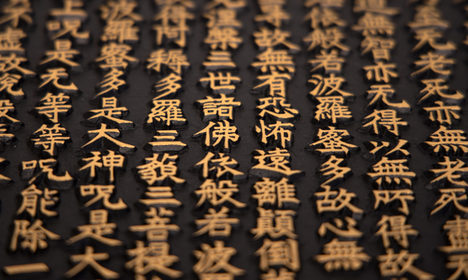 至无老死亦無老死
道無智亦无得以無所得故
依般若波羅蜜多故心無
㝵故無有恐怖遠離顛倒
槃三世諸佛依般若波
得耨多羅三藐三菩提
波羅蜜多是大神咒是大
上咒是无等等咒能除一
不虛故